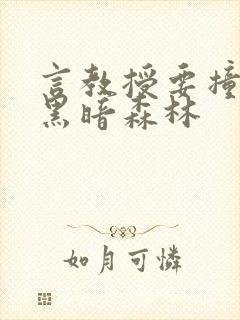 言教授要撞
黑暗森林
如月可憐